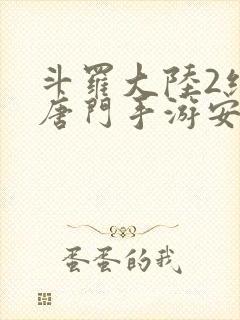 斗羅大陸2絕
唐門手游安
蛋蛋的我